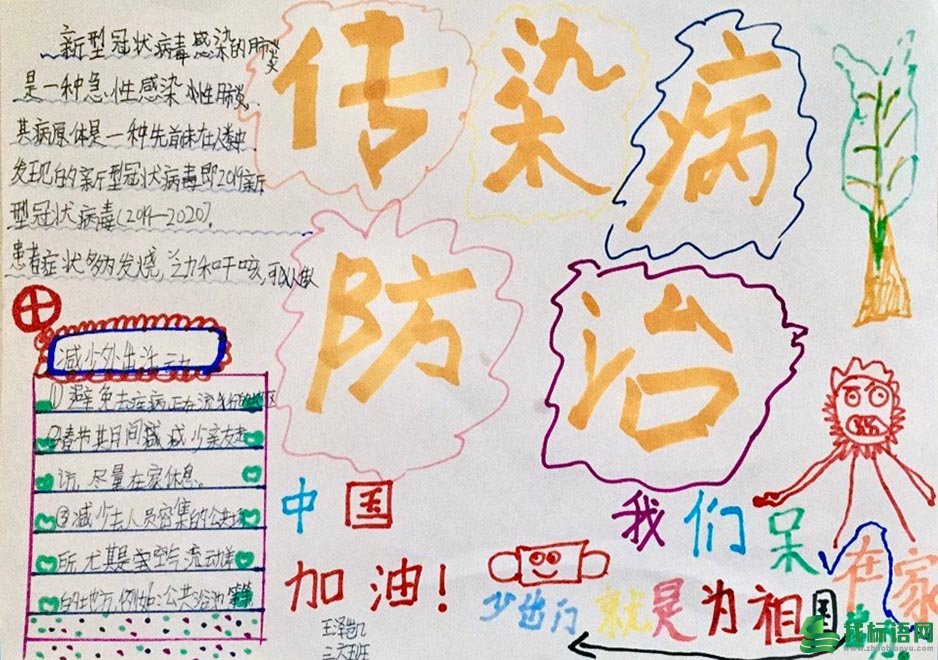 传染病
防治
新型冠状病毒感染的肺炎
是一种急性感染性肺炎.
其病原体是一种先前未在人类中
发现的新型冠状病毒即2019新
型冠状病毒(2019—2020).
患者症状多为发烧,乏力和干咳,可以人做
减少外出活动
①避免去疫病正在流行的地区
②春节其日间减减少亲友走
访,尽量在家休息。
③减少去人员密集的公共场
所,尤其是空气流动差
的地方,例如:公共浴池
中国
加油!
王泽凯
三六班
我们呆在家
少出门就是为祖国
我标语网
www.zhaobiaoyu.com